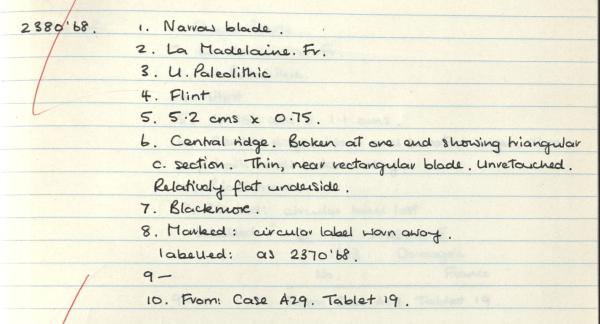 2380'68. 1. Narrow blade.
2. La Madelaine. Fr.
3. U. Paleolithic
4. Flint
5. 5.2 cms x 0.75.
6. Central ridge. Broken at one end showing triangular
c. section. Thin, near rectangular blade. Unretouched.
Relatively flat underside.
7. Blackmore.
8. Marked: circular label worn away.
labelled: as 2370'68.
9 —
10. From: Case A29. Tablet 19.